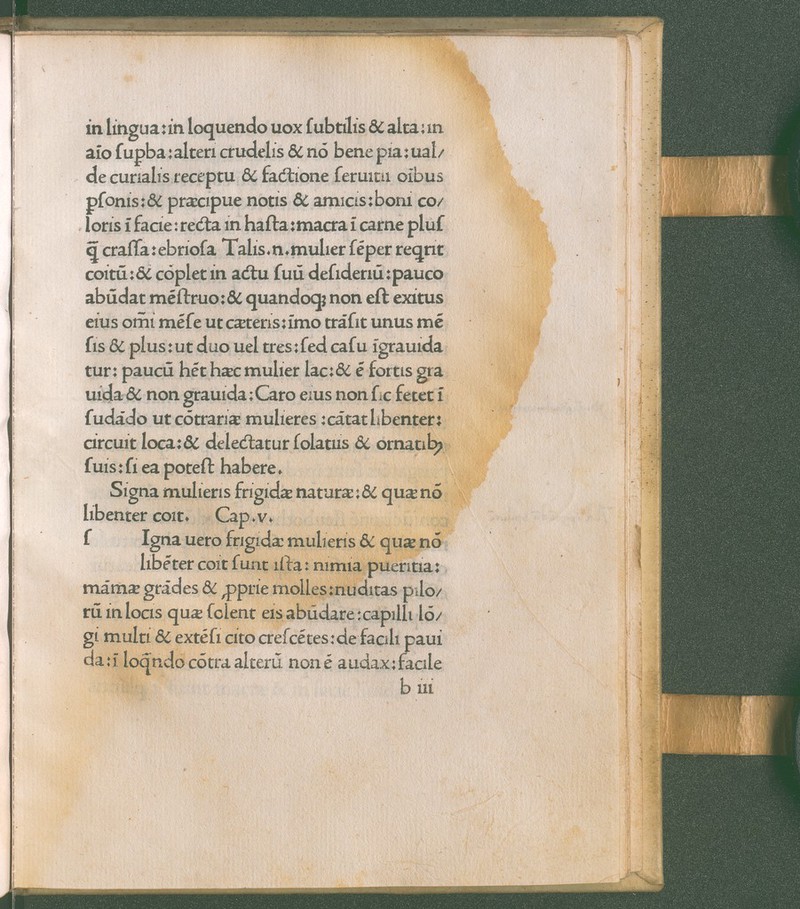 in lingua:in loquendo uox ſubtilis & alta:in
aīo ſupba:alteri crudelis & nō bene pia:ual/
de curialis receptu & factione ſeruitii oībus
pſonis:& præcipue notis & amicis:boni co/
loris ī facie:recta in haſta:macra ī carne pluſ
q̄ craſſa:ebrioſa Talis.n.mulier ſēper reqrit
coitū:& cōplet in actu ſuū deſideriū:pauco
abūdat mēſtruo:& quandoq; non eſt exitus
eius om̄i mēſe ut cæteris:īmo trāſit unus mē
ſis & plus:ut duo uel tres:ſed caſu īgrauida
tur: paucū hēt hæc mulier lac:& ē fortis gra
uida & non grauida:Caro eius non ſic fetet ī
ſudādo ut cōtrariæ mulieres :cātat libenter:
circuit loca:& delectatur ſolatiis & ornatibꝫ
ſuis:ſi ea poteſt habere.
Signa mulieris frigidæ naturæ:& quæ nō
libenter coit. Cap.v.
ſ Igna uero frigidæ mulieris & quæ nō
libēter coit ſunt iſta: nimia pueritia:
māmæ grādes & ꝓprie molles:nuditas pilo/
rū in locis quæ ſolent eis abūdare:capilli lō/
gi multi & extēſi cito creſcētes:de facili paui
da:ī loq̄ndo cōtra alterū non ē audax:facile
b iii